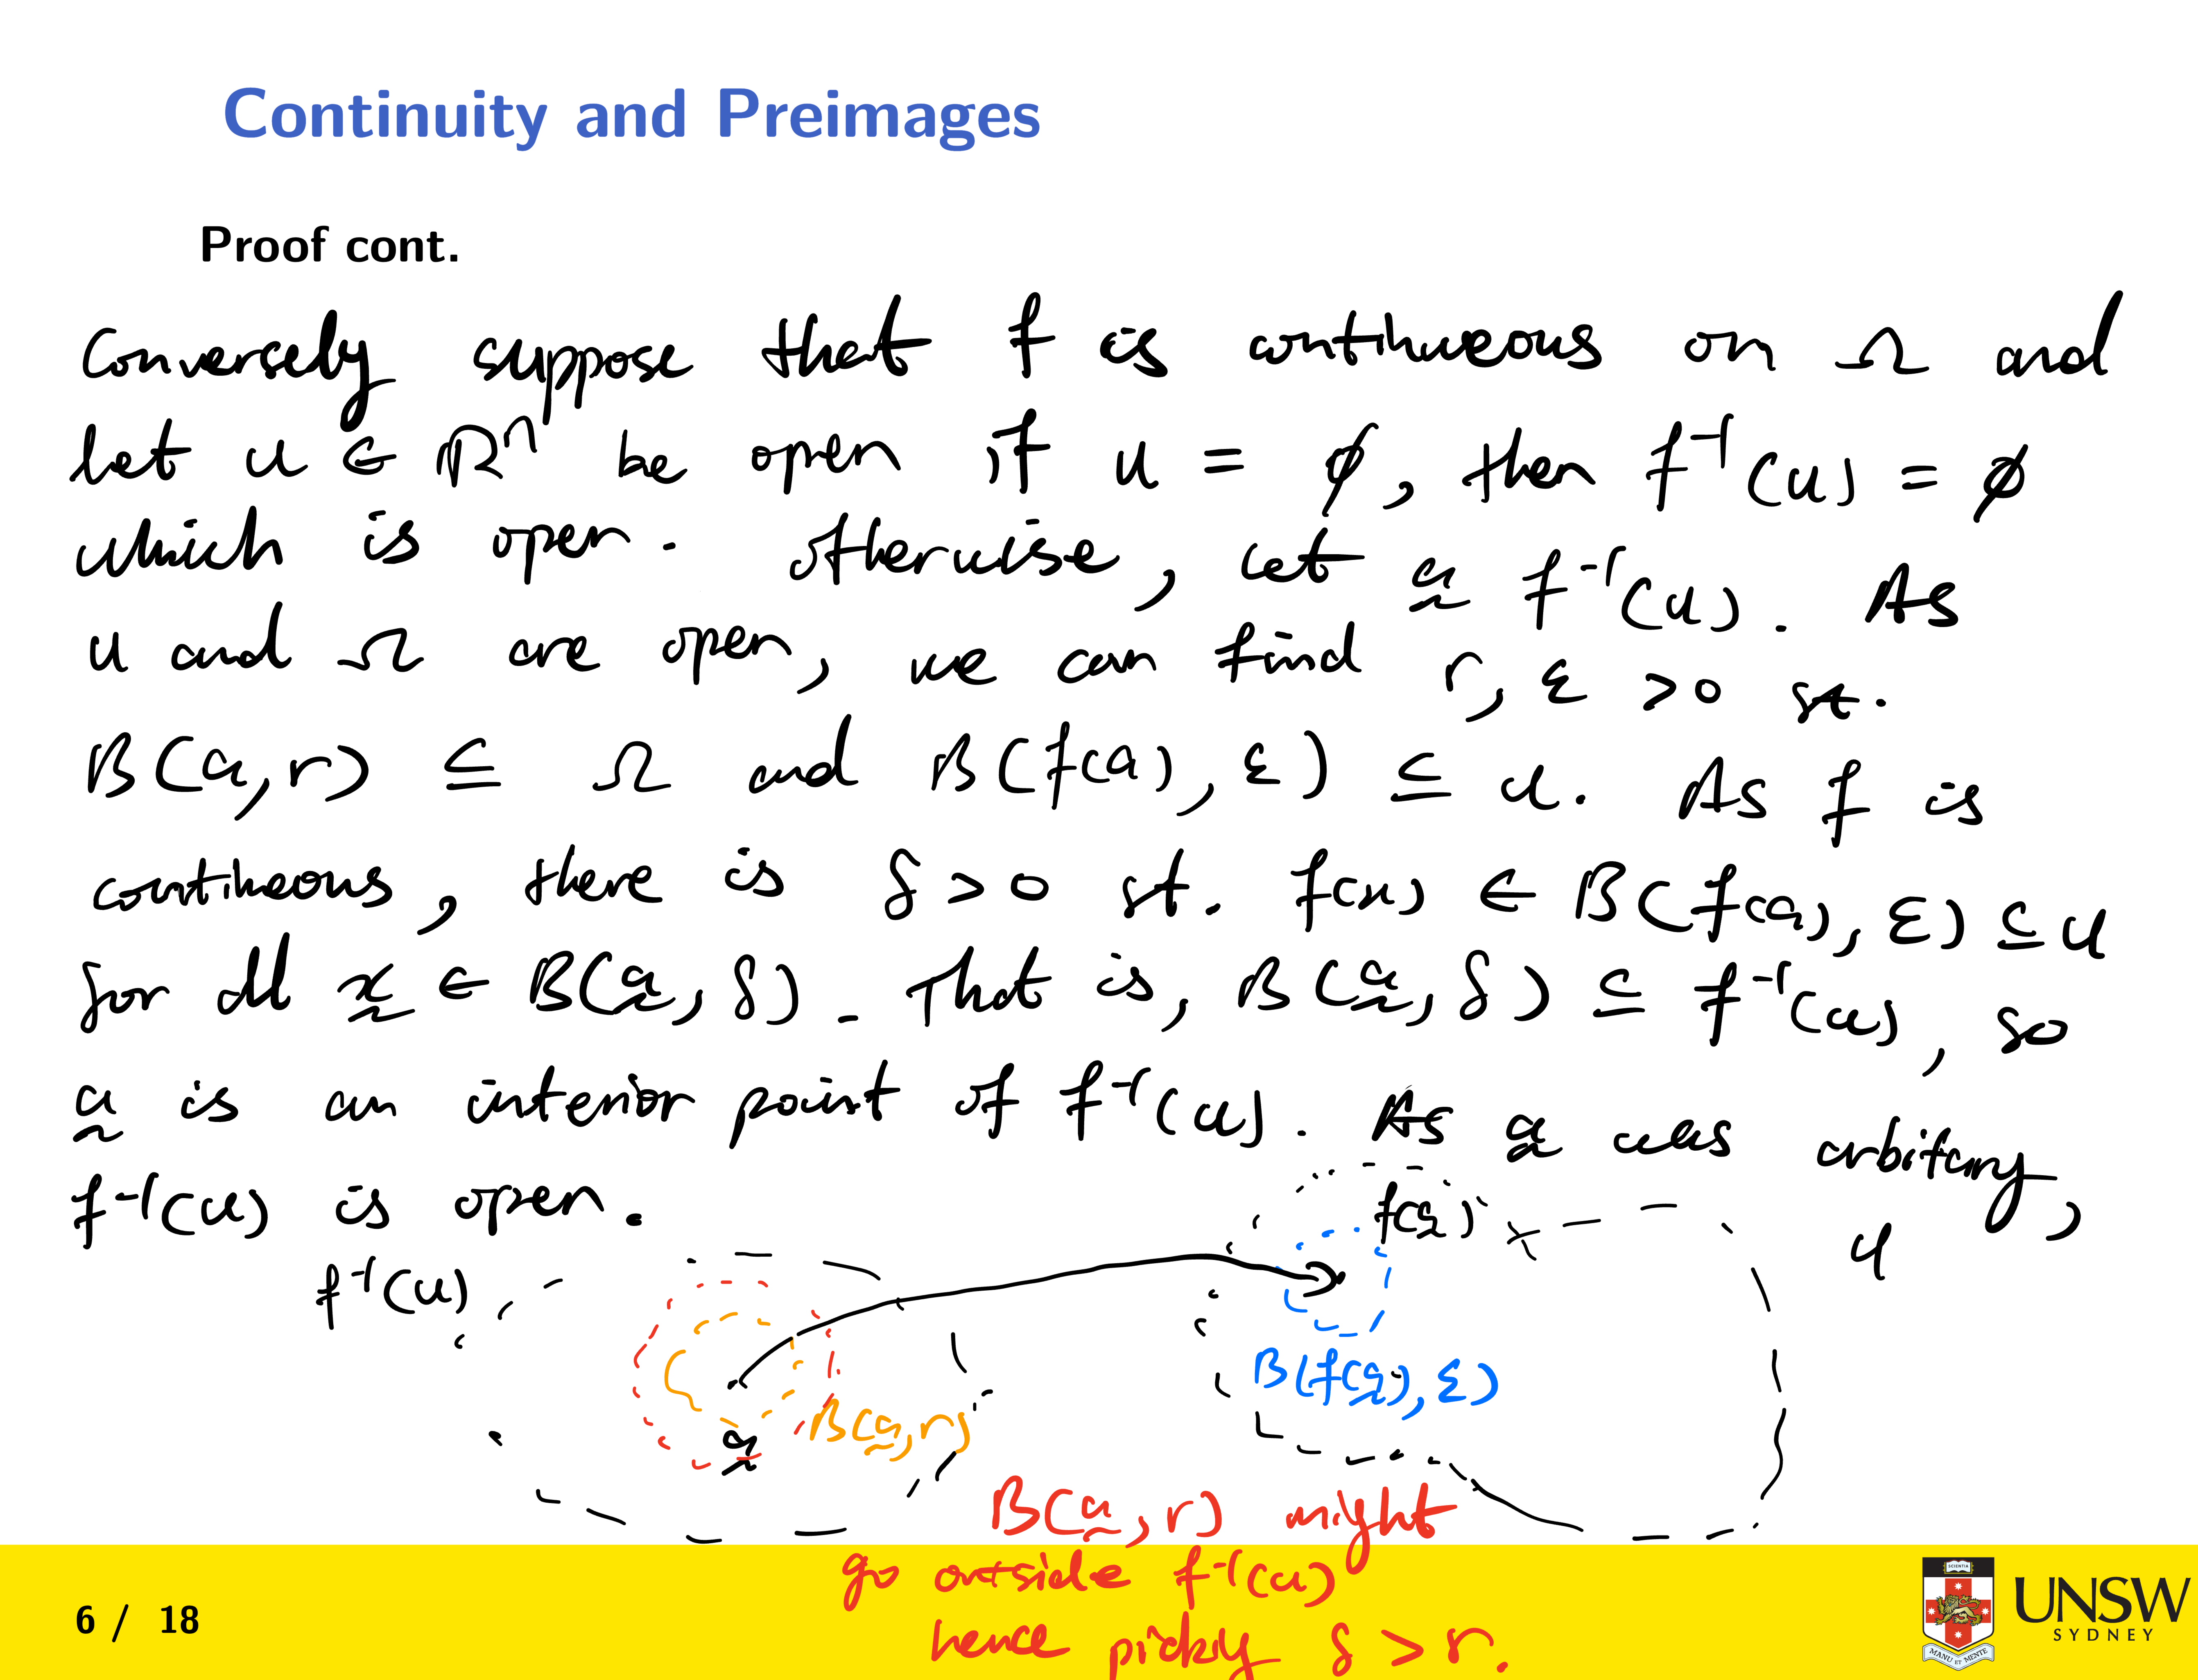 Continuity and Preimages
Proof cont.
Conversely suppose that f is continuous on Ω and
let U ∈ ℝⁿ be open if U = ∅, then f⁻¹(U) = ∅
which is open. Otherwise, let a̰ f⁻¹(U). As
U and Ω are open, we can find r, ε > 0 st.
B(a, r) ⊆ Ω and B(f(a), ε) ⊆ U. As f is
continuous, there is δ > 0 st. f(x) ∈ B(f(a), ε) ⊆ U
for all x̰ ∈ B(a̰, δ). That is, B(a̰, δ) ⊆ f⁻¹(U), so
a̰ is an interior point of f⁻¹(U). As a̰ was arbitary,
f⁻¹(U) is open.
f(a̰)
U
f⁻¹(U)
B(f(a̰), ε)
B(a̰, r)
a̰
B(a̰, r) might
go outside f⁻¹(U)
hence δ > r.
6 / 18
SCIENTIA
MANU ET MENTE
UNSW
SYDNEY